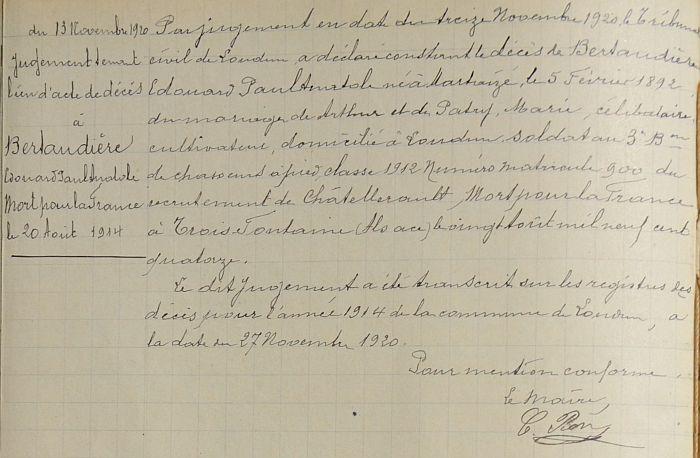 du 13 Novembre 1920
Jugement tenant
lieu d'acte de décès
à
Bertaudière
Edouard Paul Anatole
Mort pour la France
le 20 Août 1914
Par jugement en date du treize Novembre 1920, le Tribunal
civil de Loudun, a déclaré constant le décès de Bertaudière
Edouard Paul Anatole né à Martaizé, le 5 Février 1892
du mariage de Arthur et de Patry, Marie, célibataire,
cultivateur, domicilié à Loudun, soldat au 3e Bon
de chasseurs à pied, classe 1912 Numéro matricule 900 du
recrutement de Châtellerault, Mort pour la France
à Trois-Fontaine (Alsace) le vingt Août mil neuf cent
quatorze.
Le dit jugement a été transcrit sur les registres des
décès pour l'année 1914 de la commune de Loudun, a
la date du 27 Novembre 1920.
Pour mention conforme.
Le Maire,